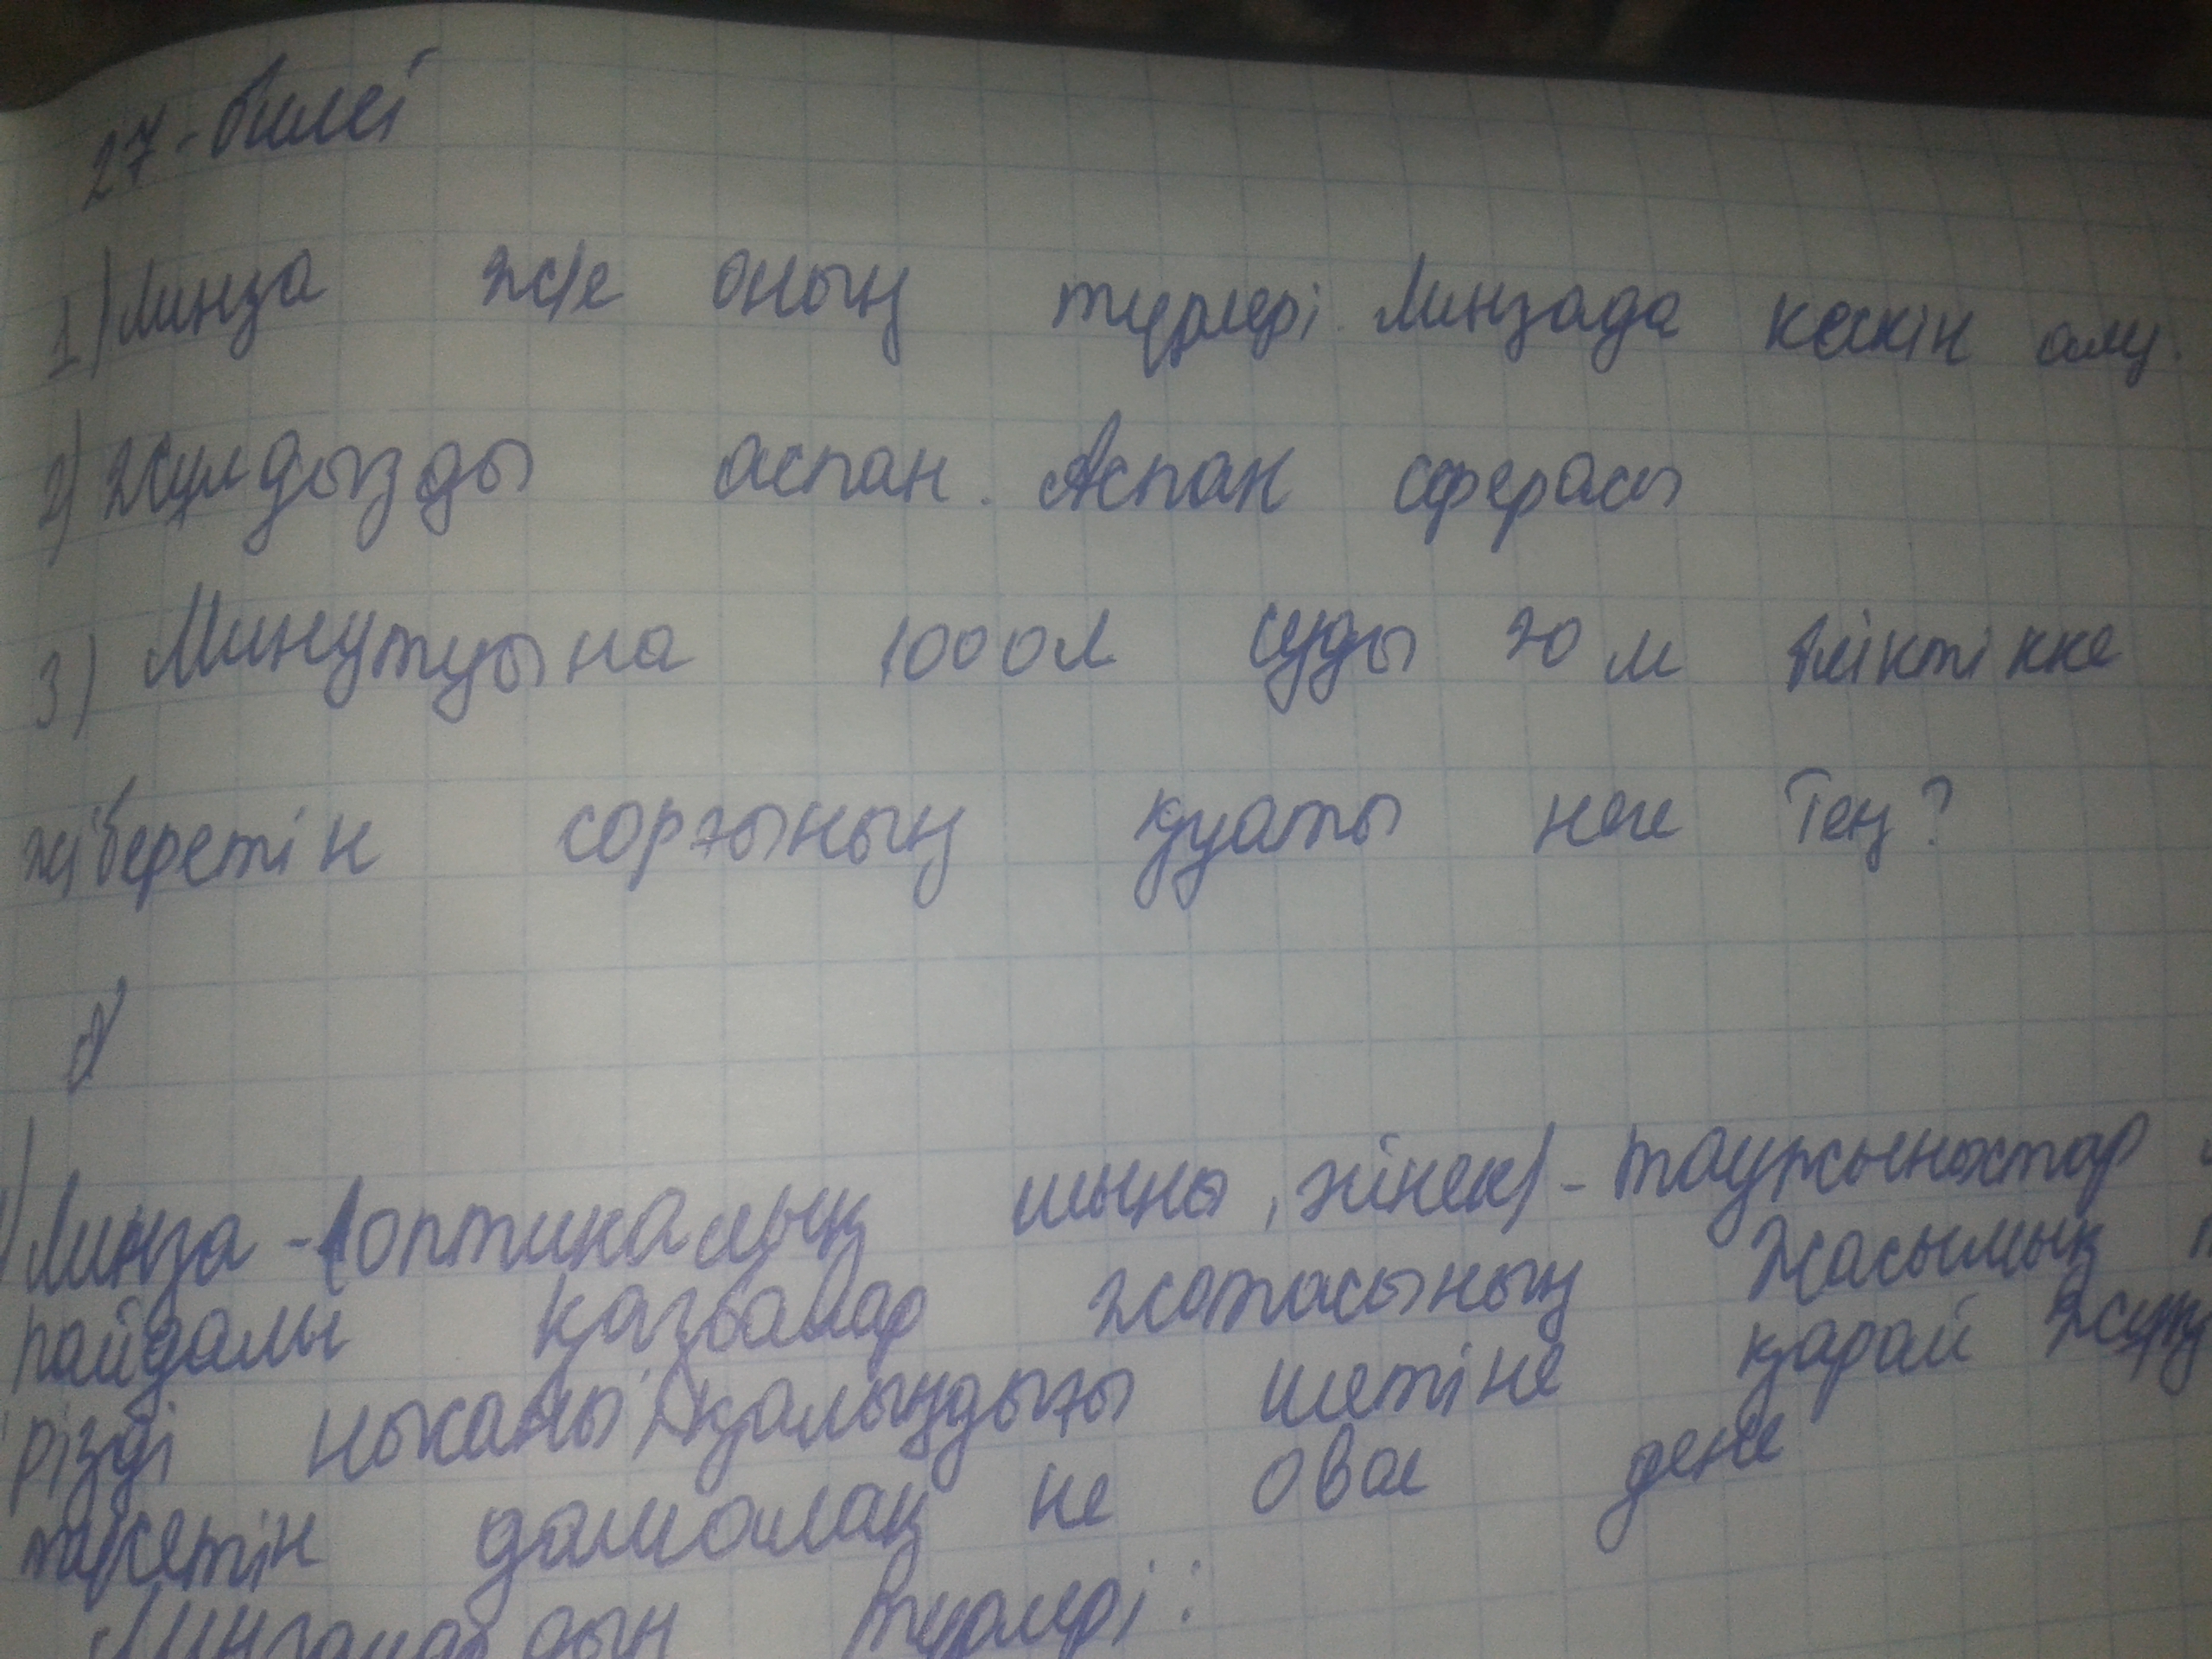 27-билеі
1) Линза ж/е оның түрлері. Линзада кескін алу.
2) Жұлдызды аспан. Аспан сферасы
3) Минутына 1000л суды 20 м биіктікке
жіберетін сорғының қуаты неге тең?
1) Линза - (оптикалық шыны, жінек) - тау жыныстар
пайдалы қазбалар жотасының жасымық
різді нысаны; қалыңдығы шетіне қарай жұқ
таретін домалақ не овал дене
Линзалардың түрлері: